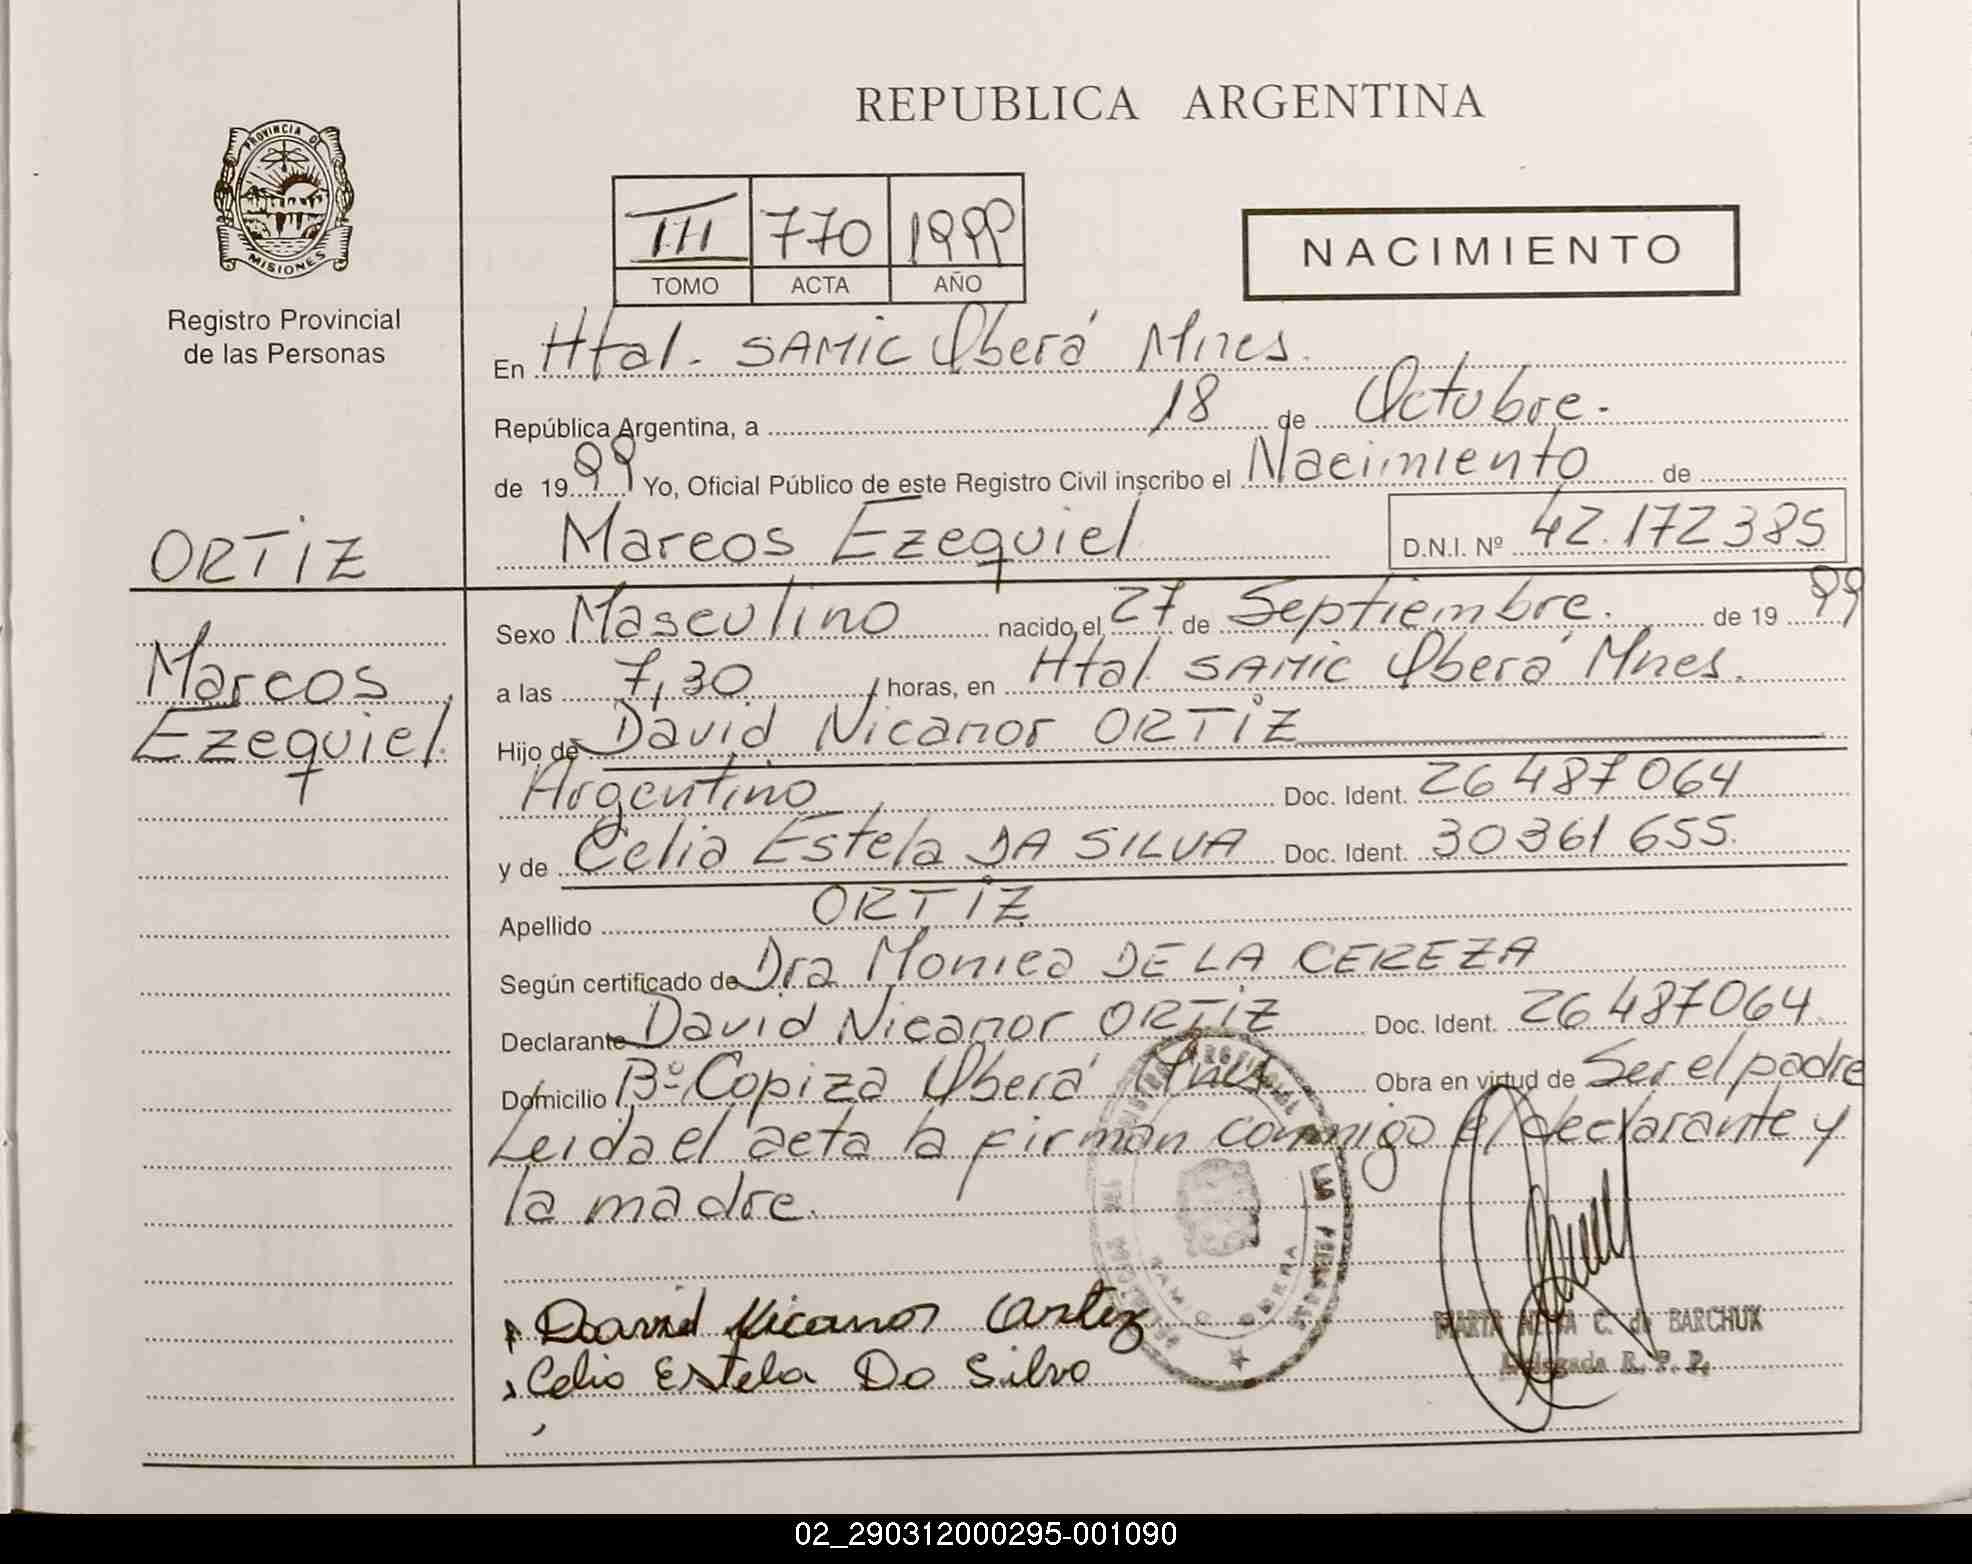 PROVINCIA DE
MISIONES
Registro Provincial
de las Personas
ORTIZ
Marcos
Ezequiel
REPUBLICA ARGENTINA
III 770 1999
TOMO ACTA AÑO
NACIMIENTO
En Htal. SAMIC Oberá Mnes.
República Argentina, a 18 de Octubre.
de 1999 Yo, Oficial Público de este Registro Civil inscribo el Nacimiento de
Marcos Ezequiel D.N.I. Nº 42.172385
Sexo Masculino nacido el 27 de Septiembre. de 1999
a las 7,30 horas, en Htal. SAMIC Oberá Mnes.
Hijo de David Nicanor ORTIZ
Argentino, Doc. Ident. 26487064
y de Celia Estela DA SILVA Doc. Ident. 30361655.
Apellido ORTIZ
Según certificado de Dra Monica DE LA CEREZA
Declarante David Nicanor ORTIZ Doc. Ident. 26487064.
Domicilio Bº Copiza Oberá Mnes Obra en virtud de Ser el padre
Leida el acta la firman conmigo el declarante y
la madre.
David Nicanor Ortiz
Celia Estela Da Silva
SAMIC OBERA
MARTA C. de BARCHUK
Delegada R. P. P.
02_290312000295-001090